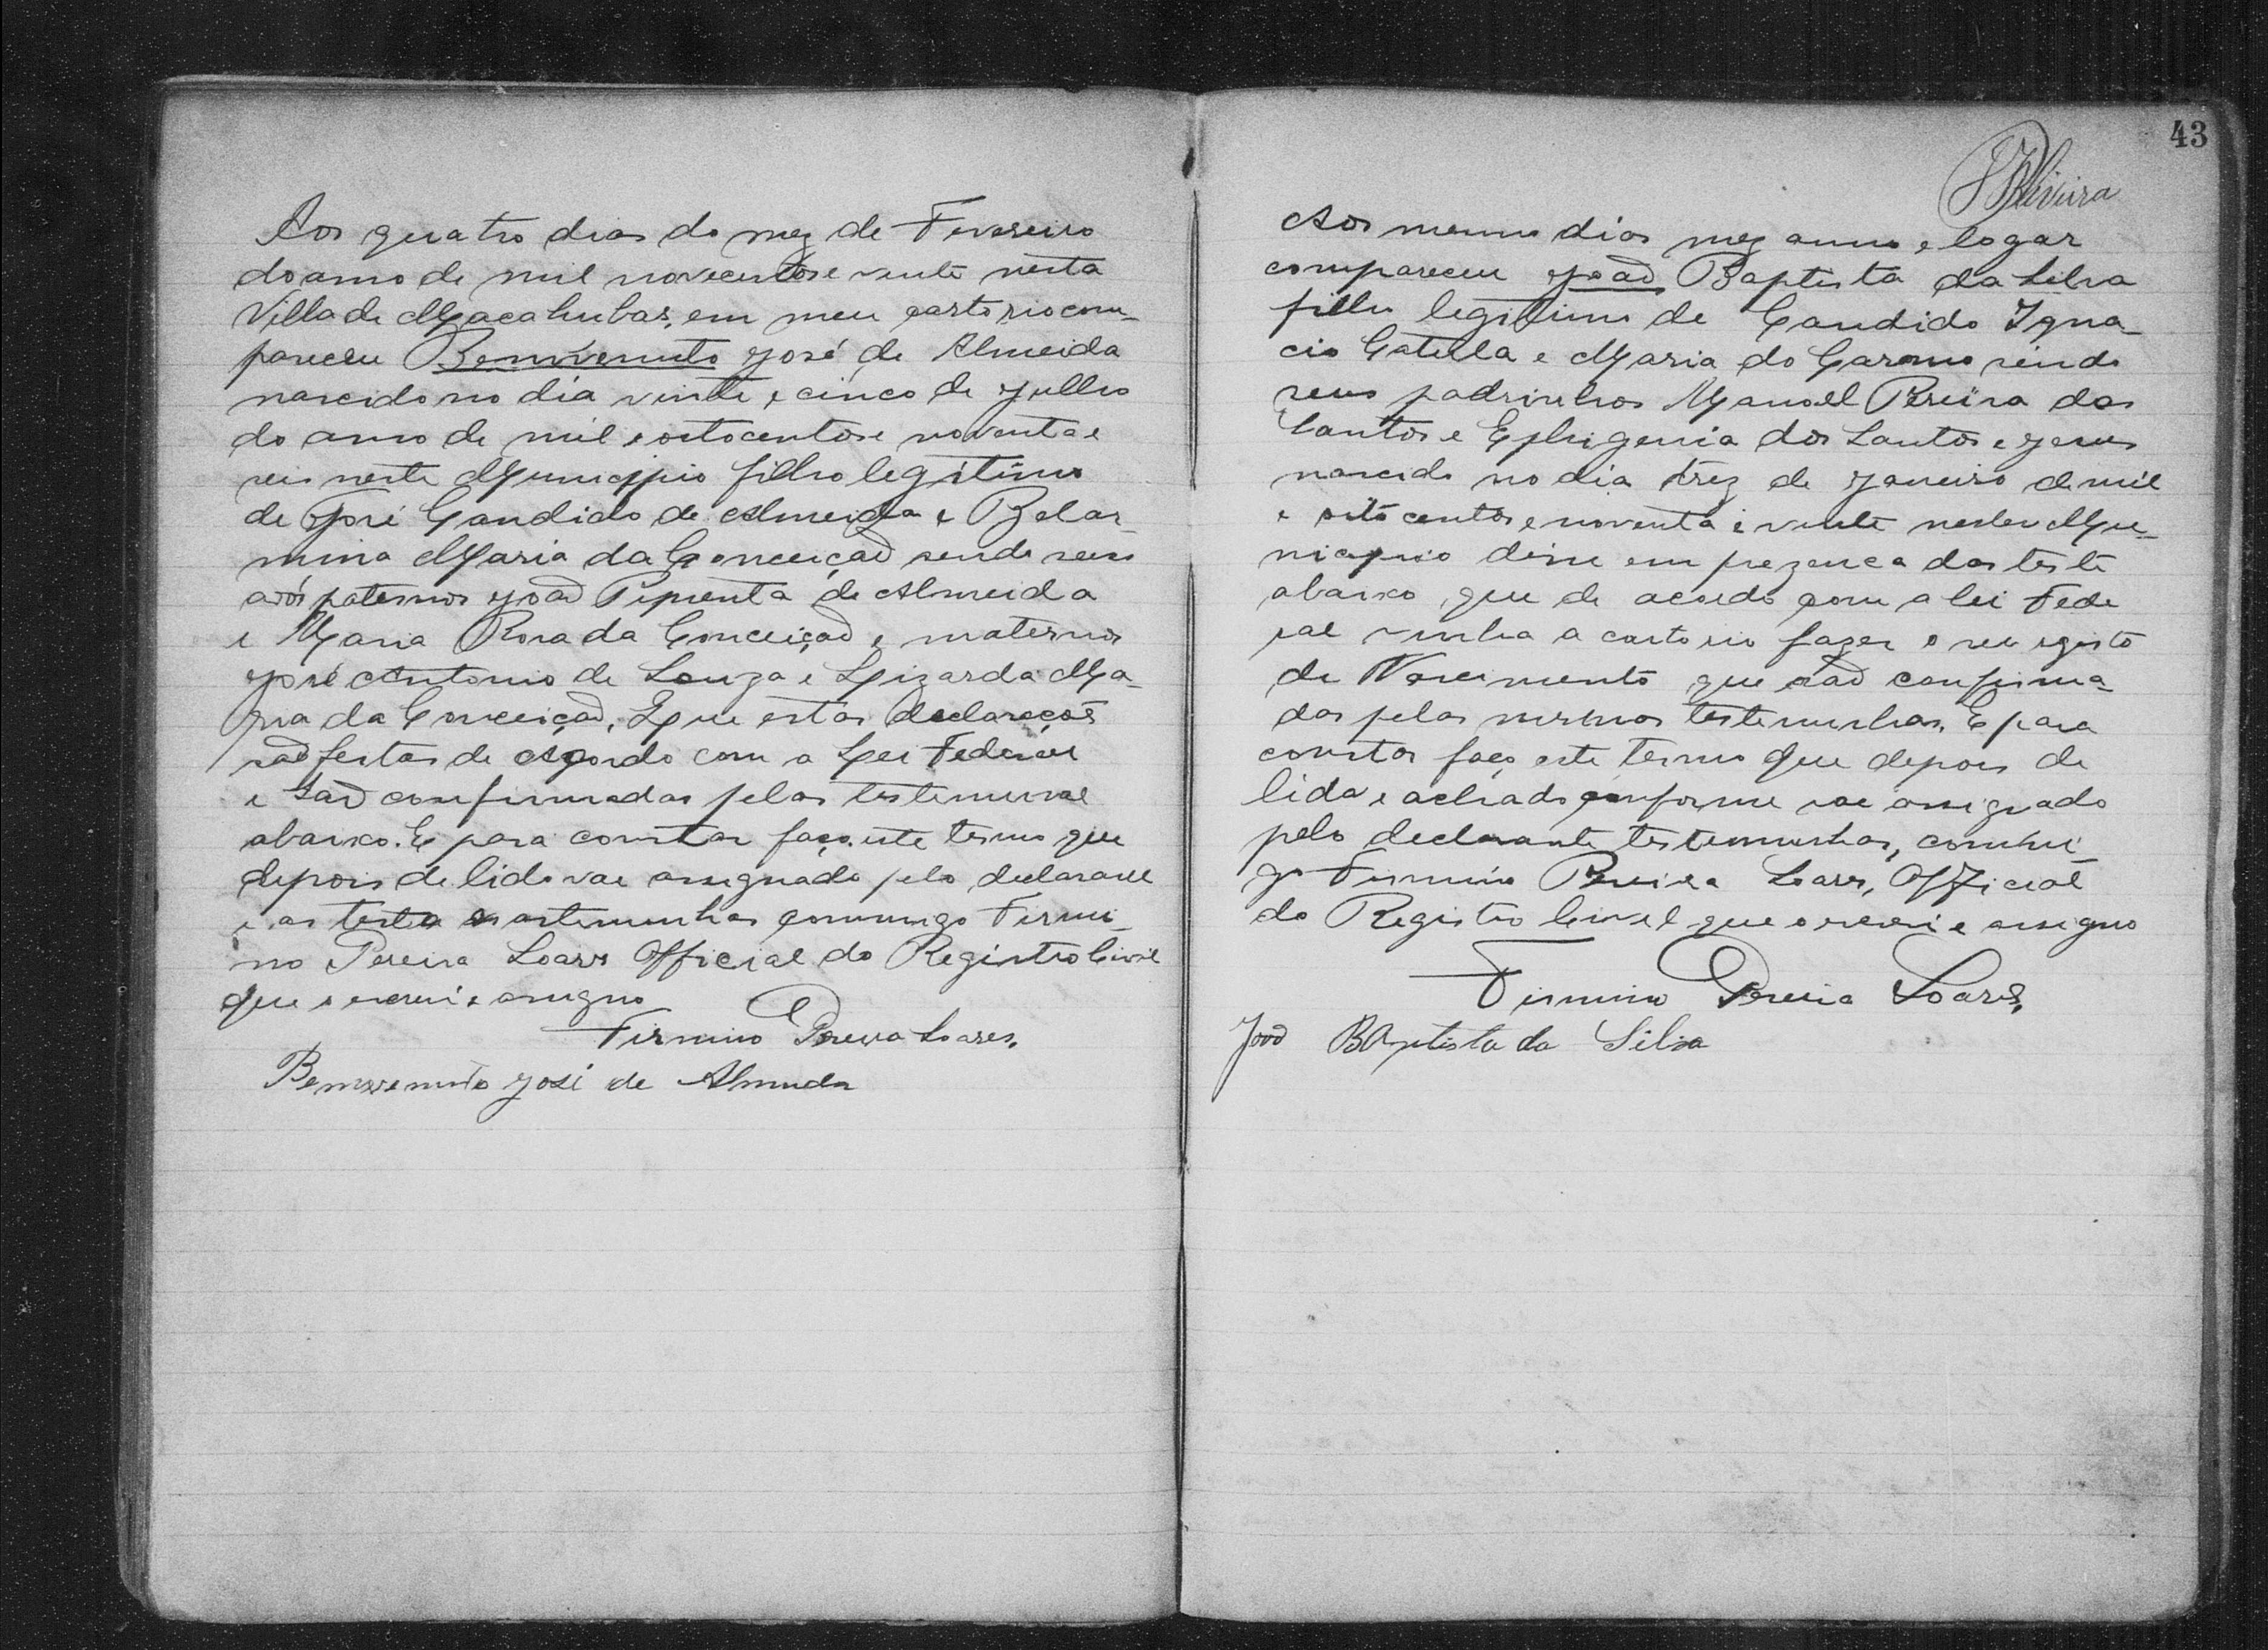 Aos quatro dias do mez de Fevereiro
do anno de mil novecentos e vinte nesta
Villa de Macahubas, em meu cartorio com-
pareceu Bemvenuto José de Almeida
nascido no dia vinte e cinco de Julho
do anno de mil e oitocentos e noventa e
seis neste Municipio filho legitimo
de José Candido de Almeida e Belar-
mina Maria da Conceição sendo seus
avós paternos João Pimenta de Almeida
e Maria Rosa da Conceição e maternos
José Antonio de Souza e Lizarda Ma-
ria da Conceição. E que estas declarações
são feitas de acordo com a Lei Federal
e são confirmadas pelas testemunhas
abaixo. E para constar faço este termo que
depois de lido vae assignado pelo declarante
e as testemunhas commigo Firmi-
no Pereira Soares Official do Registro Civil
que o escrevi e assigno
Firmino Pereira Soares.
Bemvenuto José de Almeida
43
Oliveira
Aos mesmo dias mez anno e logar
compareceu João Baptista da Silva
filho legitimo de Candido Igna-
cio Catulla e Maria do Carmo sendo
seus padrinhos Manoel Pereira dos
Santos e Ephigenia dos Santos e
nascido no dia trez de Janeiro de mil
e oito centos e noventa e vinte neste Mu-
nicipio disse em prezenca das teste
abaixo que de acordo com a lei Fede
ral vinha a cartorio fazer o seu registo
de Nascimento que são confirma-
das pelas mesmas testemunhas. E para
constar faço este termo que depois de
lida e achado conforme vae assignado
pelo declarante testemunhas, commi
go Firmino Pereira Soares, Official
do Registro Civil que o escrevi e assigno
Firmino Pereira Soares.
João Baptista da Silva